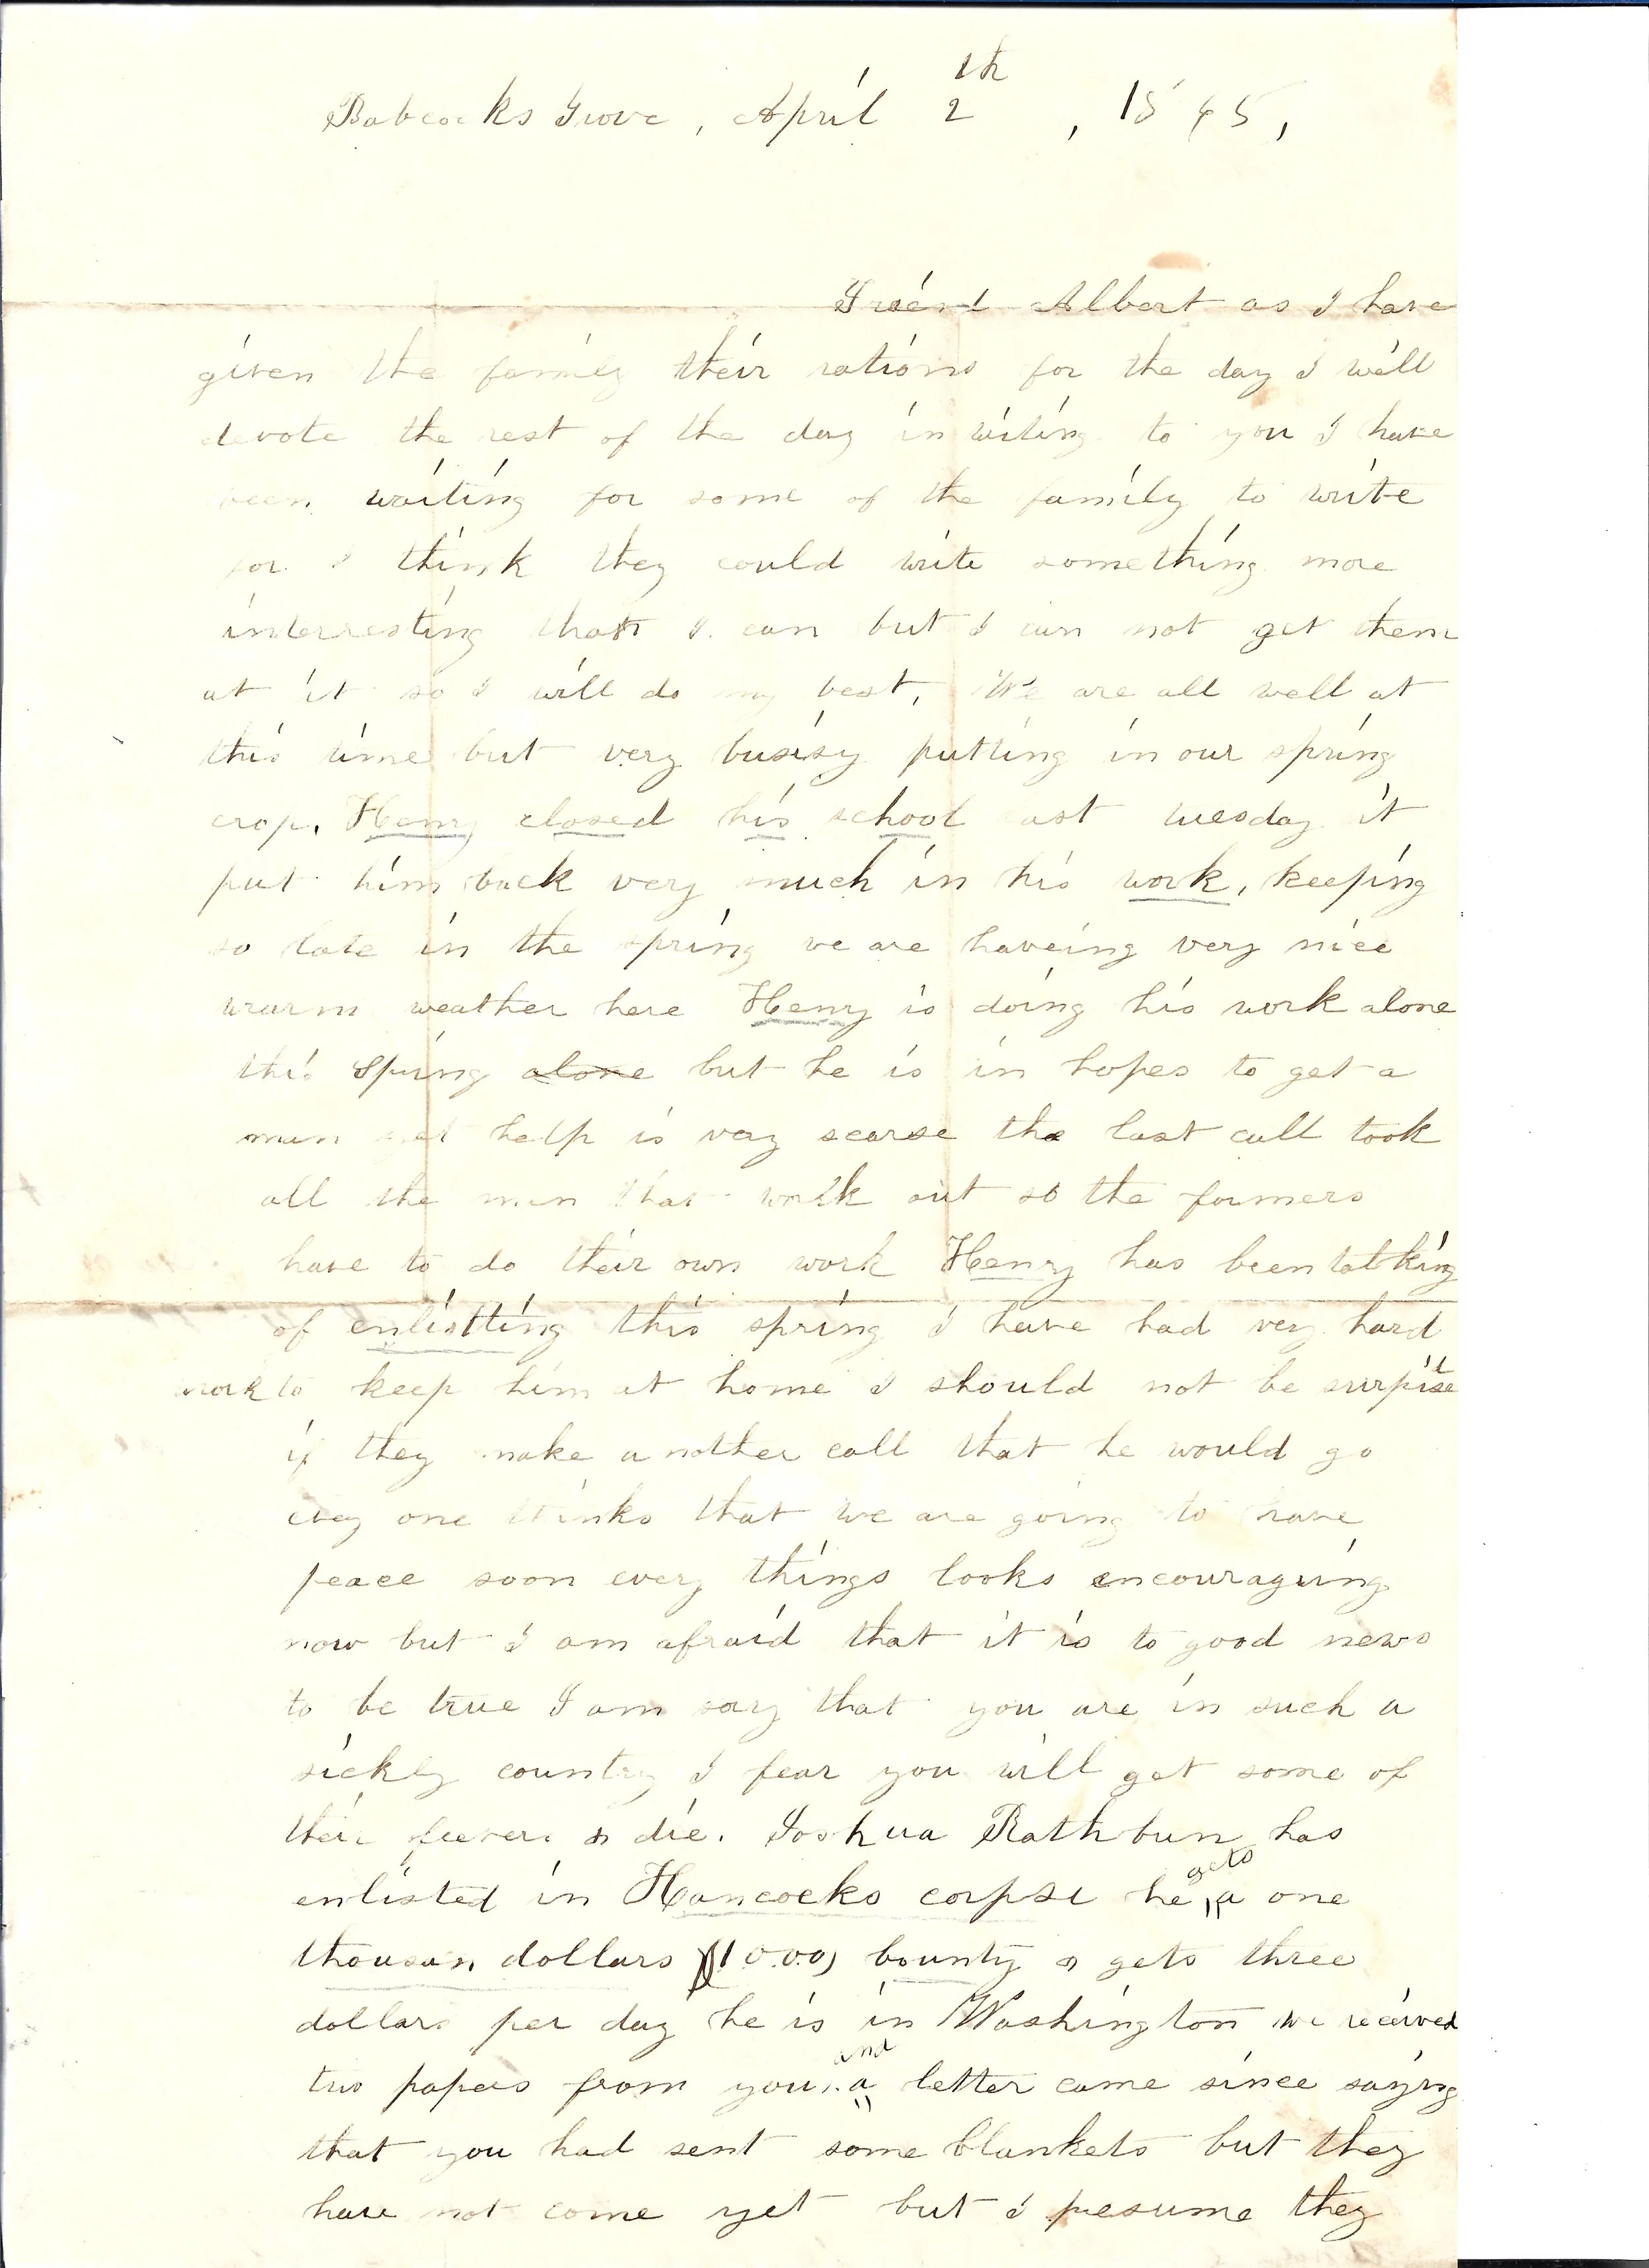 Babcocks Grove, April 2th, 1865,
Friend Albert as I have
given the family their rations for the day I will
devote the rest of the day in writing to you I have
been waiting for some of the family to write
for I think they could write something more
interresting than I can but I can not get them
at it so I will do my best, We are all well at
this time but very busisy putting in our spring
crop, Henry closed his school last tuesday it
put him back very much in his work, keeping
so late in the spring we are haveing very nice
warm weather here Henry is doing his work alone
this Spring alone but he is in hopes to get a
man yet help is very scarse the last call took
all the men that work out so the farmers
have to do their own work Henry has been talking
of enlistting this spring I have had very hard
work to keep him at home I should not be surpised
if they make a nother call that he would go
evey one thinks that we are going to have
peace soon every things looks encouraging
now but I am afraid that it is to good news
to be true I am sory that you are in such a
sickly country I fear you will get some of
their feevers & die. Joshua Rathbun has
enlisted in Hancocks corpse he gets a one
thousan dollars ($1000) bounty & gets three
dollars per day he is in Washington we received
two papers from you, and a letter came since saying
that you had sent some blankets but they
have not come yet but I presume they